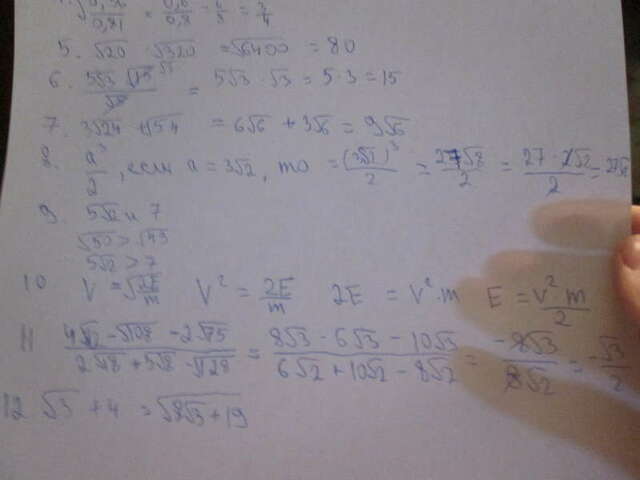 √0,36/0,81 = 0,6/0,9 = 2/3
5. √20 · √320 = √6400 = 80
6. 5√3 · √15 / √5 = 5√3 · √3 = 5·3 = 15
7. 3√24 + √54 = 6√6 + 3√6 = 9√6
8. a³/2, если a = 3√2, то = (3√2)³/2 = 27√8/2 = 27·2√2/2 = 27√2
9. 5√2 и 7
√50 > √49
5√2 > 7
10 V = √2E/m V² = 2E/m 2E = V²·m E = V²·m/2
11 4√12 - √108 - 2√75 / 2√18 + 5√8 - √128 = 8√3 - 6√3 - 10√3 / 6√2 + 10√2 - 8√2 = -8√3/8√2 = -√3/2
12 √3 + 4 = √8√3 + 19